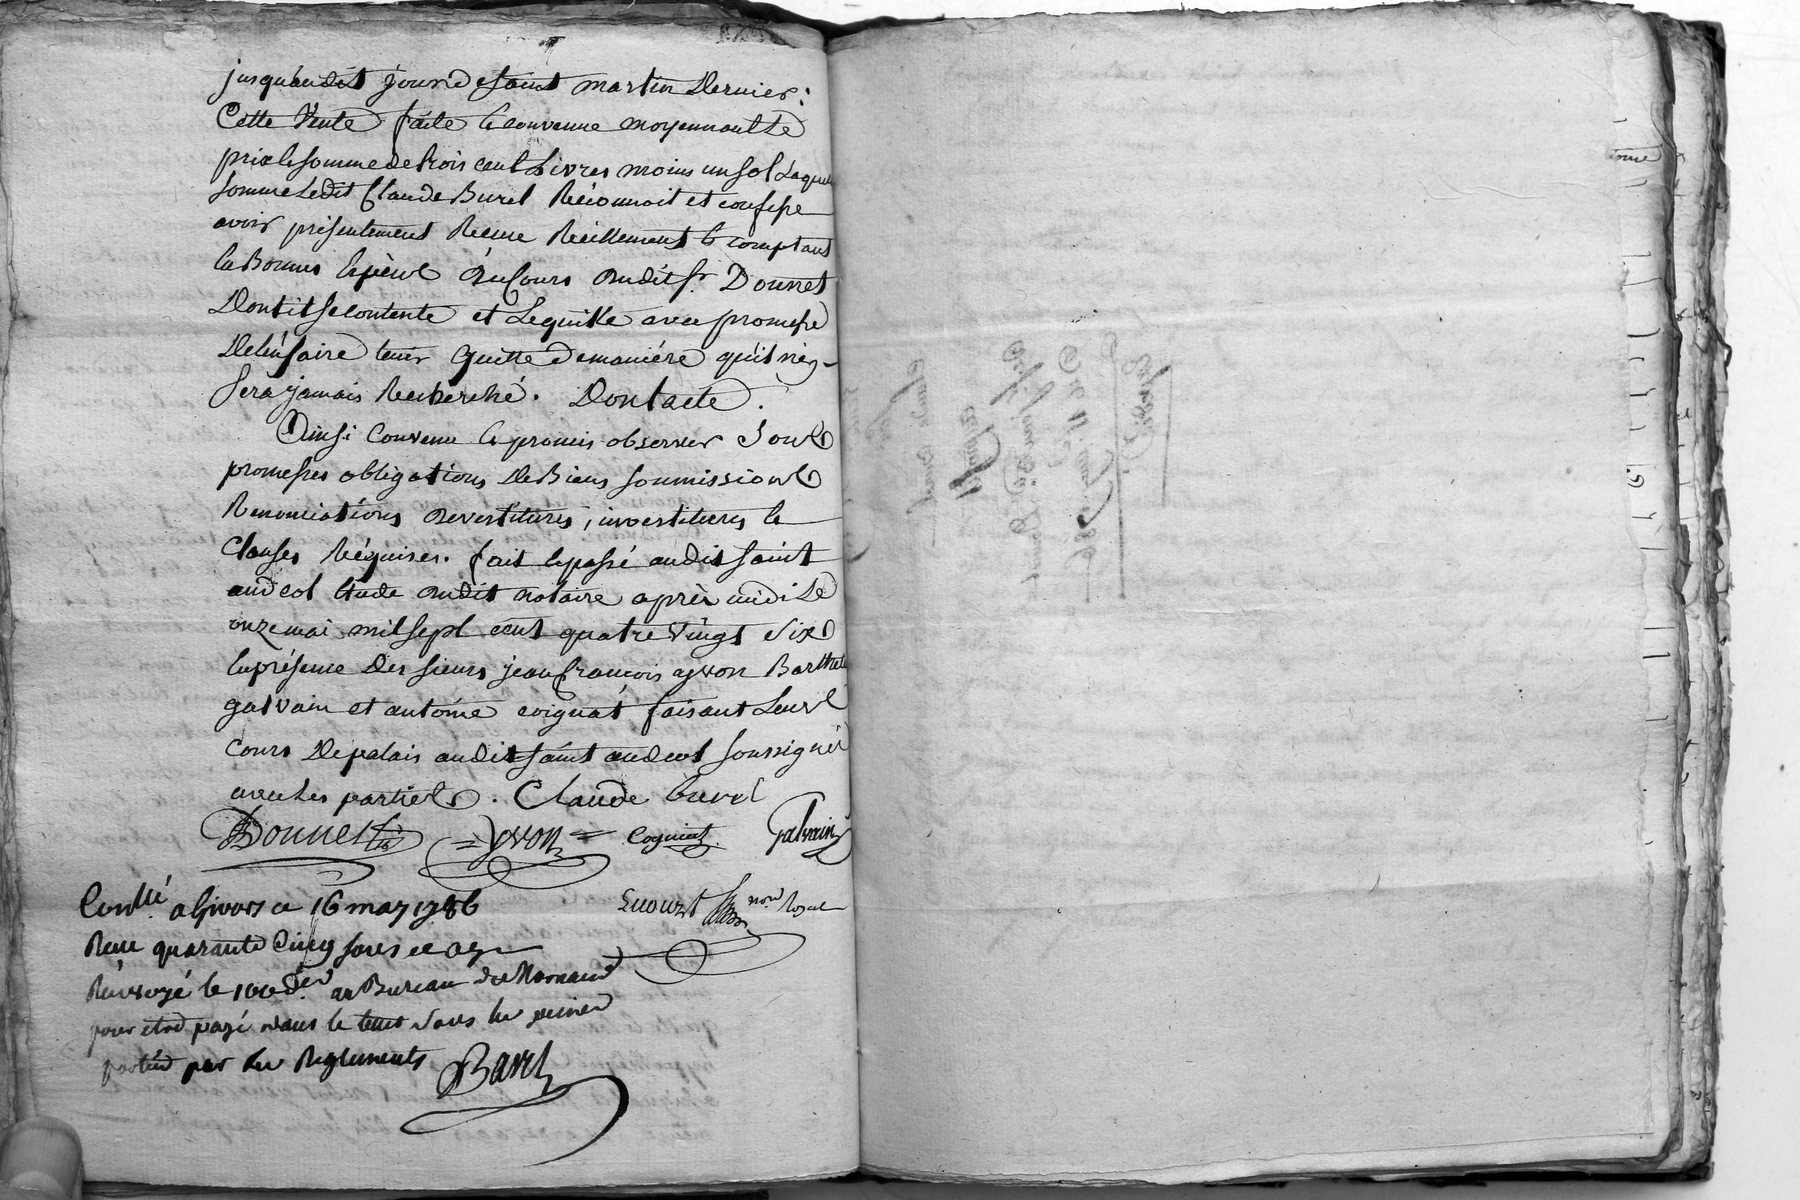 jusqu'audit jour de saint martin Dernier:
Cette Vente faite & convenue moyennant le
prix & somme de trois cent Livres moins un sol Laquel
somme Ledit Claude Burel Reconnoit et confesse
avoir présentement Reçue Réellement & comptant
en Bonnes Espèces Du Cours dudit sr. Donnet
Dont il se contente et Lequitte avec promesse
De l'en faire tenir quitte de manière qu'il n'en
sera jamais Recherché. Dont acte.
Ainsi Convenu & promis observer sous
promesses obligations De Biens soumissions
Renonciations Devestitures, investitures &
Clauses Réquises. fait & passé audit saint
andeol Etude dudit notaire après midi Le
onze mai mil sept cent quatre Vingt six
En présence Des sieurs jean françois yvon Barthel
galvain et antoine coignat faisant Leurs
cours De palais audit saint andeol soussignés
avec Les parties. Claude burel
Donnet = yvon = Cogniat Galvain
Conllé a Givors ce 16 may 1786
Reçu quarante Cinq sous
Renvoyé le 100 Der au Bureau de Mornand
pour etre payé dans le tems sous les peines
portées par les Reglements